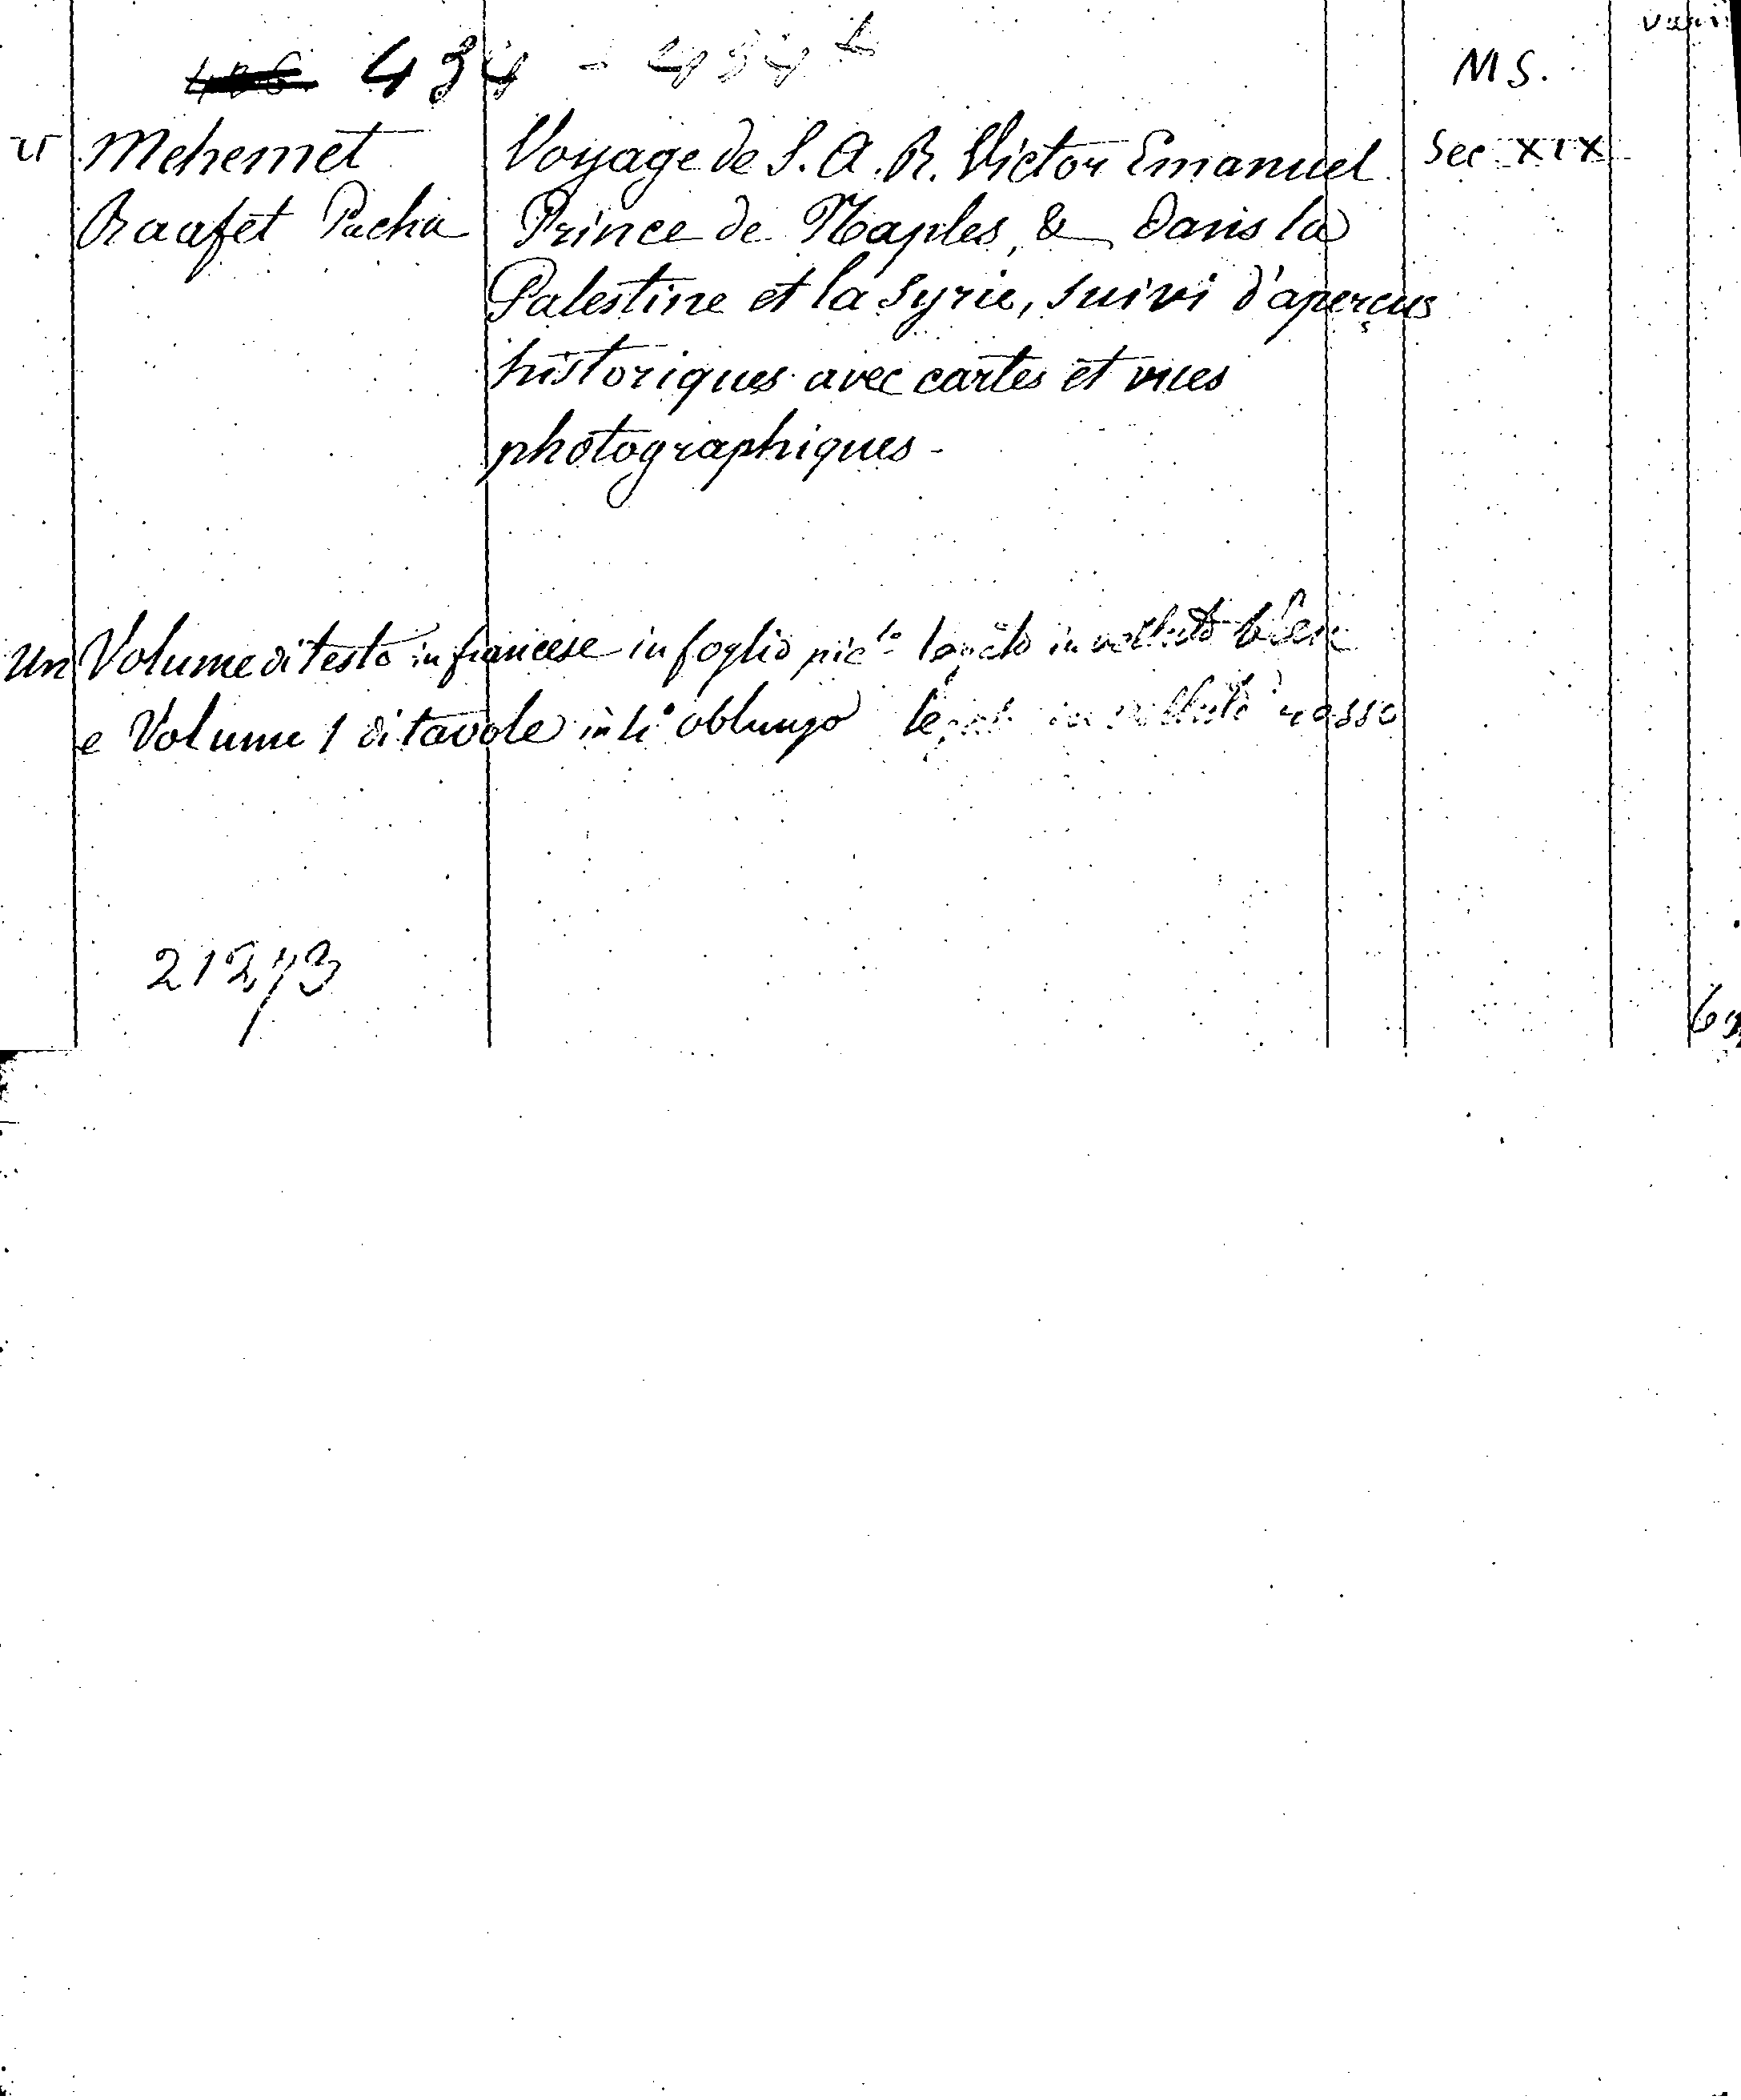 434 - 434 1
MS.
v Mehemet Voyage de S. A. R. Victor Emanuel Sec XIX
Raafet Pacha Prince de Naples, & dans la
Palestine et la Syrie, suivi d'aperçus
historiques avec cartes et vues
photographiques -
Un Volume di testo in francese in foglio pic.lo legato in velluto bleu
e Volume 1 di tavole in 4° oblungo legato in velluto rosso
21273